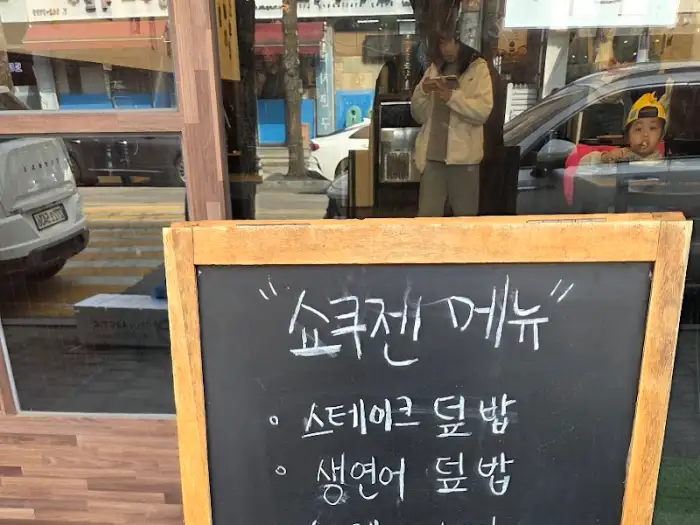 "쇼쿠젠 메뉴"
◦ 스테이크 덮밥
◦ 생연어 덮밥